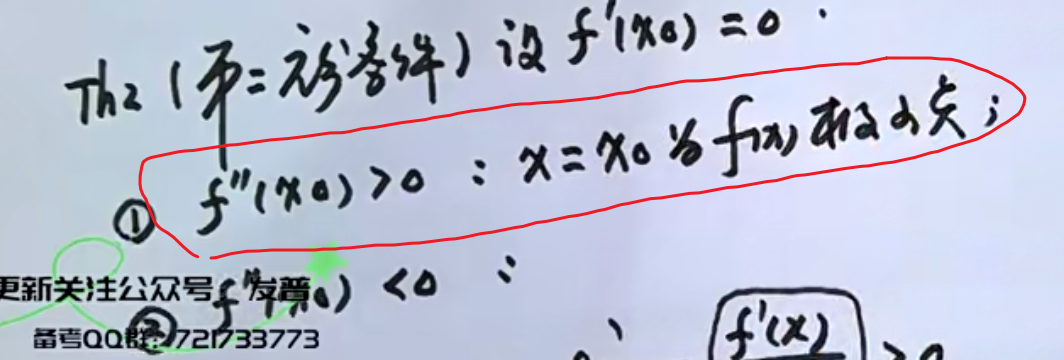 Th2 (第二充分条件) 设 f'(x0) = 0 .
① f''(x0) > 0 : x = x0 为 f(x) 极小点 ;
② f''(x0) < 0 :
更新关注公众号:发普
备考QQ群:721733773
f'(x)
> 0